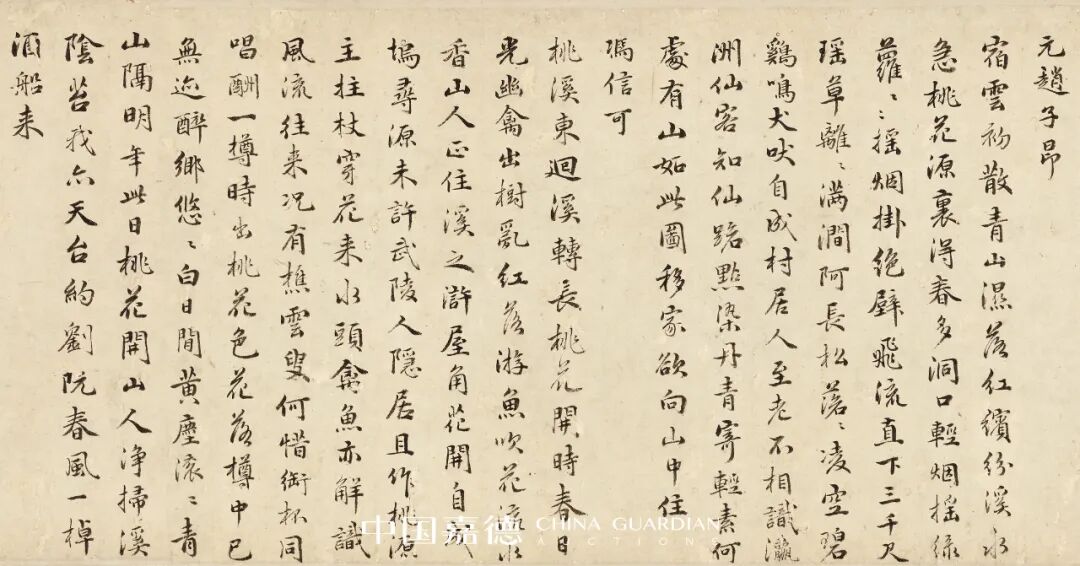 元趙子昂
宿雲初散青山濕落紅繽紛溪水
急桃花源裏得春多洞口輕烟摇綠
蘿綠蘿摇烟掛絶壁飛流直下三千尺
瑶草離離滿澗阿長松落落凌空碧
鷄鳴犬吠自成村居人至老不相識瀛
洲仙客知仙路點染丹青寄輕素何
處有山如此圖移家欲向山中住
馮信可
桃溪東迴溪轉長桃花開時春日
光幽禽出樹亂紅落游魚吹花流水
香山人正住溪之滸屋角花開自成
塢尋源未許武陵人隱居且作桃源
主拄杖穿花来水頭禽魚亦解識
風流往来况有樵雲叟何惜銜杯同
唱酬一樽時出桃花色花落樽中已
無迹醉鄉悠悠白日閒黄塵滚滚青
山隔明年此日桃花開山人净掃溪
陰苔我亦天台約劉阮春風一棹
酒船来
中国嘉德 CHINA GUARDIAN AUCTIONS